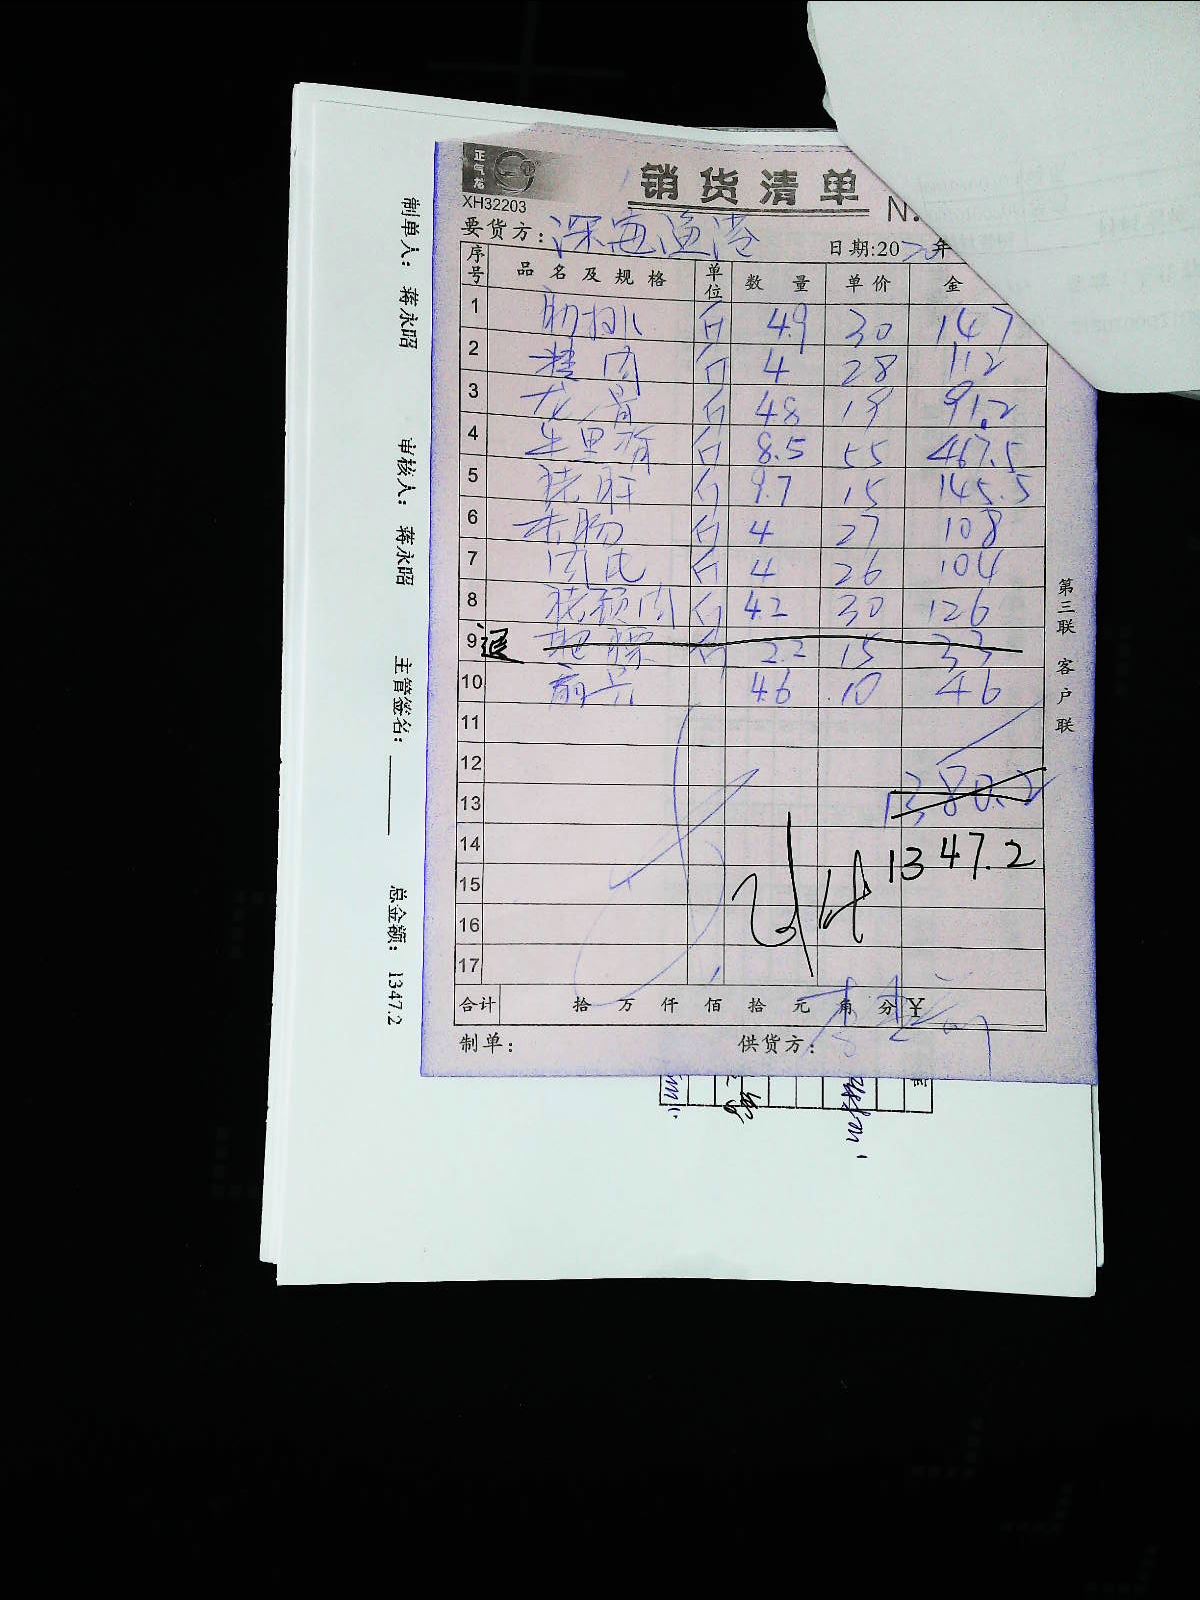 正气龙
XH32203
销货清单
N.
要货方: 深海渔港
日期:2020年
序号 品名及规格 单位 数量 单价 金
1 肋排 斤 4.9 30 147
2 精肉 斤 4 28 112
3 龙骨 斤 4.8 19 91.2
4 牛里脊 斤 8.5 55 467.5
5 猪肝 斤 9.7 15 145.5
6 斤 4 27 108
7 斤 4 26 104
8 猪颈肉 斤 4.2 30 126
9 退 斤 2.2 15 33
10 4.6 10 46
11
12
13 1380.2
14 1347.2
15
16
17
合计 拾 万 仟 佰 拾 元 角 分 ¥
制单: 供货方:
第三联 客户联
制单人: 蒋永昭 审核人: 蒋永昭 主管签名: 总金额: 1347.2